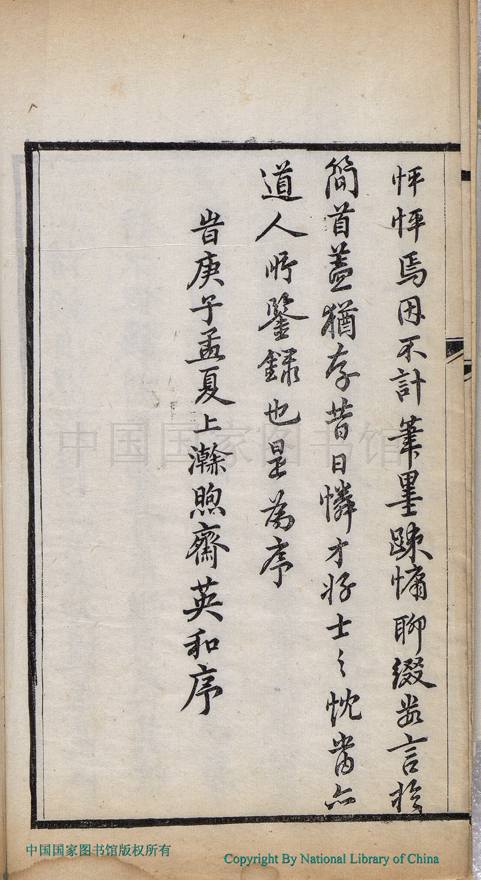 怦怦焉因不計筆墨踈慵聊綴數言於
簡首蓋猶存昔日憐才好士之忱當亦
道人所鑒録也是為序
旹庚子孟夏上澣煦齋英和序
中国国家图书馆
中国国家图书馆版权所有
Copyright By National Library of China